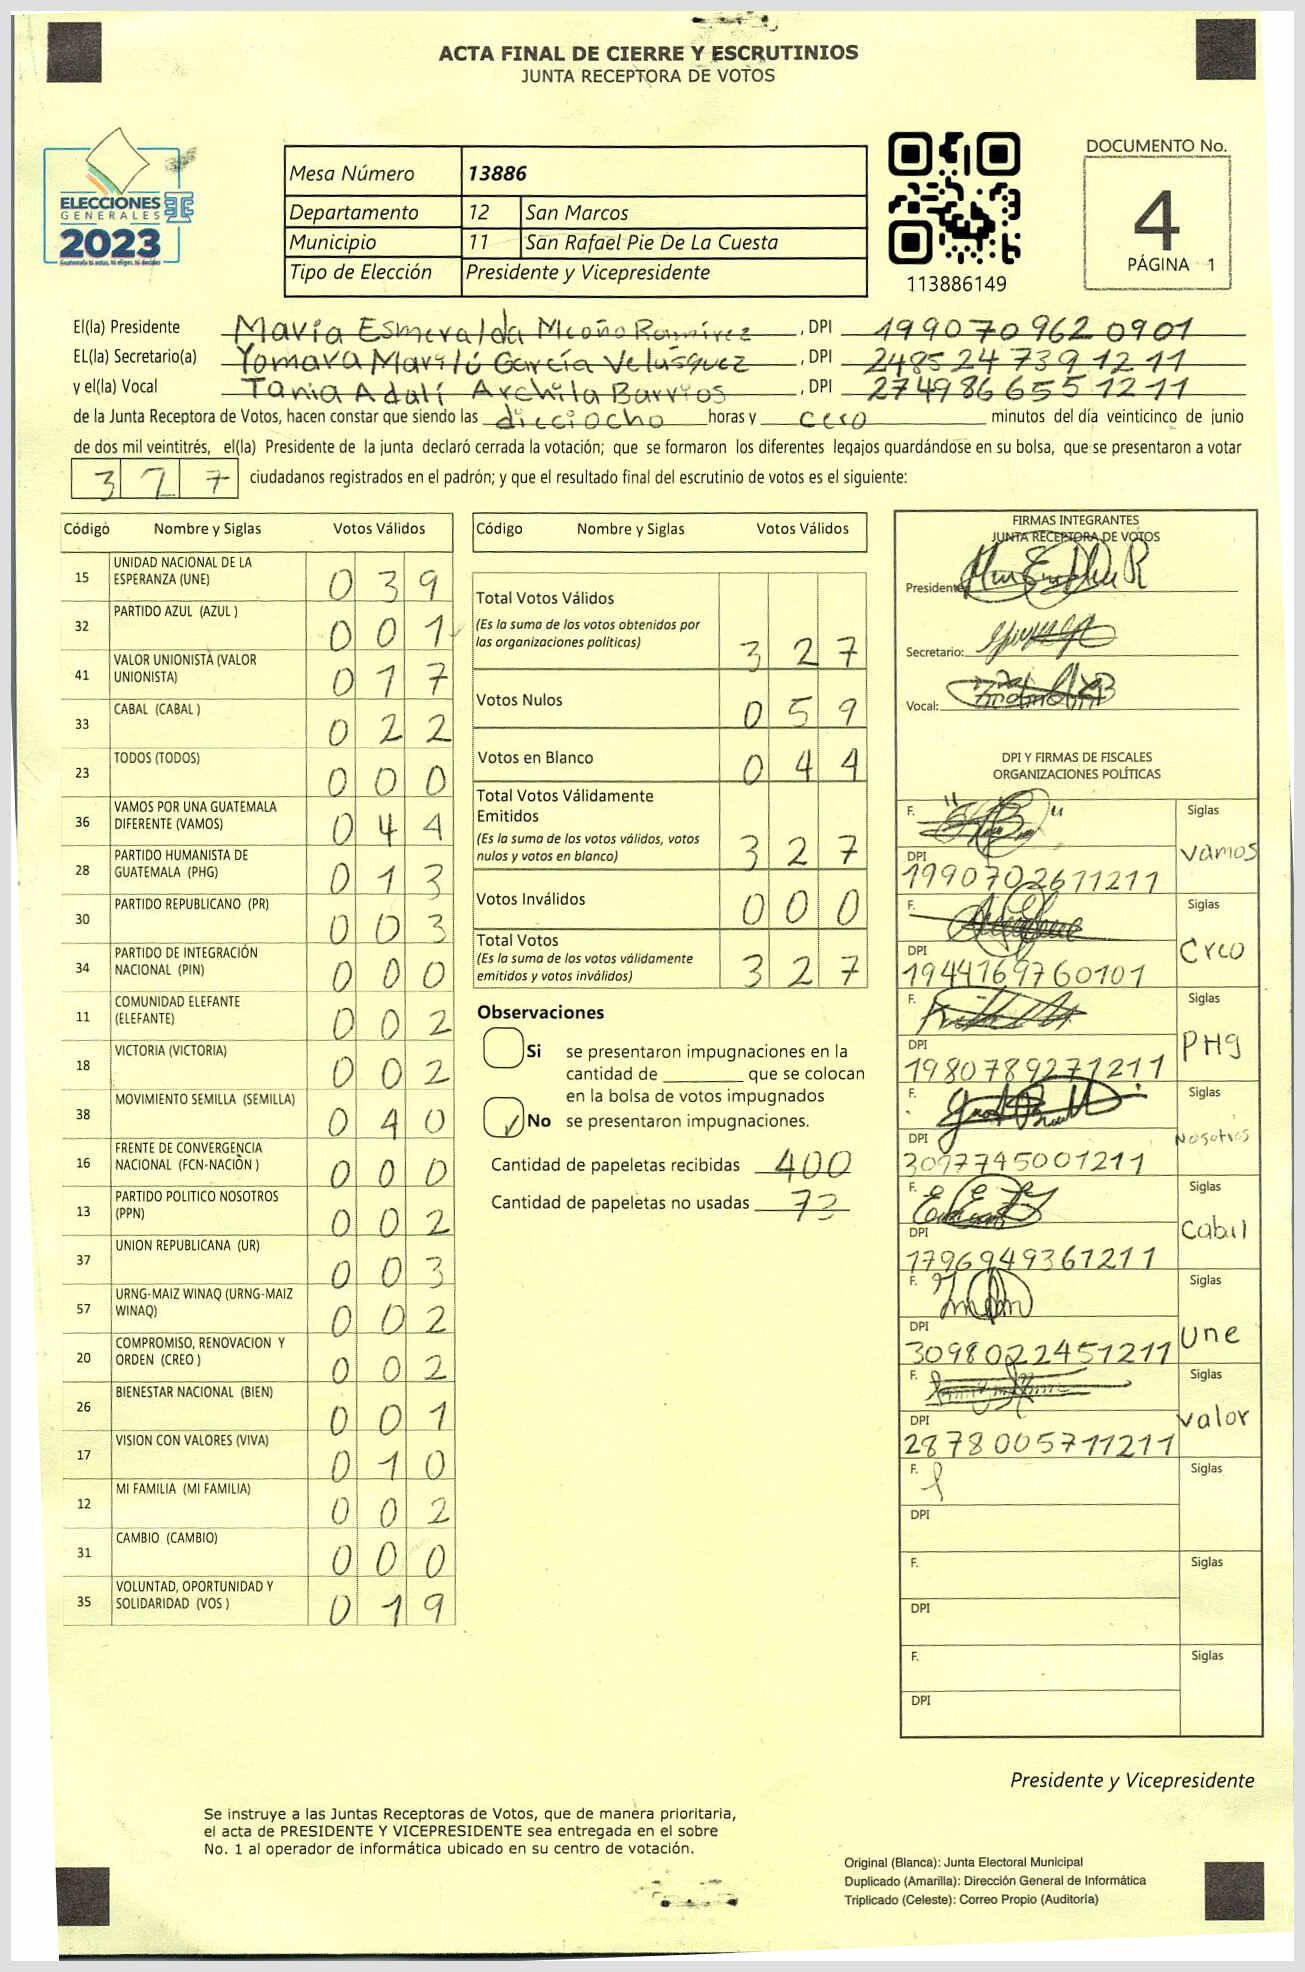 ACTA FINAL DE CIERRE Y ESCRUTINIOS
JUNTA RECEPTORA DE VOTOS
ELECCIONES
GENERALES
2023
Mesa Número 13886
Departamento 12 San Marcos
Municipio 11 San Rafael Pie De La Cuesta
Tipo de Elección Presidente y Vicepresidente
113886149
DOCUMENTO No.
4
PÁGINA 1
El(la) Presidente María Esmeralda Ramírez, DPI 1990709620901
EL(la) Secretario(a) Yomara Marilú García Velásquez, DPI 2485247391211
y el(la) Vocal Tania Adalí Archila Barrios, DPI 2749866551211
de la Junta Receptora de Votos, hacen constar que siendo las dieciocho horas y cero minutos del día veinticinco de junio
de dos mil veintitrés, el(la) Presidente de la junta declaró cerrada la votación; que se formaron los diferentes legajos guardándose en su bolsa, que se presentaron a votar
3 2 7 ciudadanos registrados en el padrón; y que el resultado final del escrutinio de votos es el siguiente:
Código Nombre y Siglas Votos Válidos
15 UNIDAD NACIONAL DE LA ESPERANZA (UNE) 0 3 9
32 PARTIDO AZUL (AZUL ) 0 0 1
41 VALOR UNIONISTA (VALOR UNIONISTA) 0 1 7
33 CABAL (CABAL ) 0 2 2
23 TODOS (TODOS) 0 0 0
36 VAMOS POR UNA GUATEMALA DIFERENTE (VAMOS) 0 4 4
28 PARTIDO HUMANISTA DE GUATEMALA (PHG) 0 1 3
30 PARTIDO REPUBLICANO (PR) 0 0 3
34 PARTIDO DE INTEGRACIÓN NACIONAL (PIN) 0 0 0
11 COMUNIDAD ELEFANTE (ELEFANTE) 0 0 2
18 VICTORIA (VICTORIA) 0 0 2
38 MOVIMIENTO SEMILLA (SEMILLA) 0 4 0
16 FRENTE DE CONVERGENCIA NACIONAL (FCN-NACIÓN ) 0 0 0
13 PARTIDO POLITICO NOSOTROS (PPN) 0 0 2
37 UNION REPUBLICANA (UR) 0 0 3
57 URNG-MAIZ WINAQ (URNG-MAIZ WINAQ) 0 0 2
20 COMPROMISO, RENOVACION Y ORDEN (CREO ) 0 0 2
26 BIENESTAR NACIONAL (BIEN) 0 0 1
17 VISION CON VALORES (VIVA) 0 1 0
12 MI FAMILIA (MI FAMILIA) 0 0 2
31 CAMBIO (CAMBIO) 0 0 0
35 VOLUNTAD, OPORTUNIDAD Y SOLIDARIDAD (VOS ) 0 1 9
Código Nombre y Siglas Votos Válidos
Total Votos Válidos
(Es la suma de los votos obtenidos por
las organizaciones políticas) 3 2 7
Votos Nulos 0 5 9
Votos en Blanco 0 4 4
Total Votos Válidamente
Emitidos
(Es la suma de los votos válidos, votos
nulos y votos en blanco) 3 2 7
Votos Inválidos 0 0 0
Total Votos
(Es la suma de los votos válidamente
emitidos y votos inválidos) 3 2 7
Observaciones
Si se presentaron impugnaciones en la
cantidad de ________ que se colocan
en la bolsa de votos impugnados
No se presentaron impugnaciones.
Cantidad de papeletas recibidas 400
Cantidad de papeletas no usadas 73
FIRMAS INTEGRANTES
JUNTA RECEPTORA DE VOTOS
Presidente
Secretario:
Vocal:
DPI Y FIRMAS DE FISCALES
ORGANIZACIONES POLÍTICAS
F. Siglas
Vamos
DPI
1990702611211
F. Siglas
Creo
DPI
1944169760101
F. Siglas
PHg
DPI
1980789271211
F. Siglas
Nosotros
DPI
3097745001211
F. Siglas
Cabal
DPI
1796949361211
F. Siglas
Une
DPI
3098022451211
F. Siglas
Valor
DPI
2878005711211
F. Siglas
DPI
F. Siglas
DPI
F. Siglas
DPI
Presidente y Vicepresidente
Se instruye a las Juntas Receptoras de Votos, que de manera prioritaria,
el acta de PRESIDENTE Y VICEPRESIDENTE sea entregada en el sobre
No. 1 al operador de informática ubicado en su centro de votación.
Original (Blanca): Junta Electoral Municipal
Duplicado (Amarilla): Dirección General de Informática
Triplicado (Celeste): Correo Propio (Auditoría)